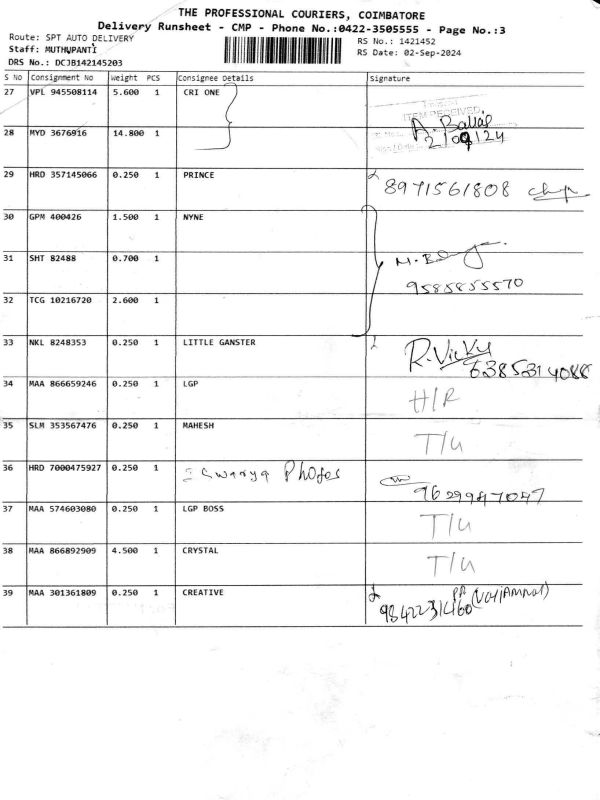 THE PROFESSIONAL COURIERS, COIMBATORE
Delivery Runsheet - CMP - Phone No.:0422-3505555 - Page No.:3
Route: SPT AUTO DELIVERY
RS No.: 1421452
Staff: MUTHUPANTI
RS Date: 02-Sep-2024
DRS No.: DCJB142145203
S No Consignment No Weight PCS Consignee Details Signature
27 VPL 945508114 5.600 1 CRI ONE
ITEM RECEIVED
28 MYD 3676916 14.800 1
29 HRD 357145066 0.250 1 PRINCE 8971561808
30 GPM 400426 1.500 1 NYNE
31 SHT 82488 0.700 1
9585855570
32 TCG 10216720 2.600 1
33 NKL 8248353 0.250 1 LITTLE GANSTER R.Vicky
6385314088
34 MAA 866659246 0.250 1 LGP H/R
35 SLM 353567476 0.250 1 MAHESH T/U
36 HRD 7000475927 0.250 1 Photos
9629947047
37 MAA 574603080 0.250 1 LGP BOSS T/U
38 MAA 866892909 4.500 1 CRYSTAL T/U
39 MAA 301361809 0.250 1 CREATIVE